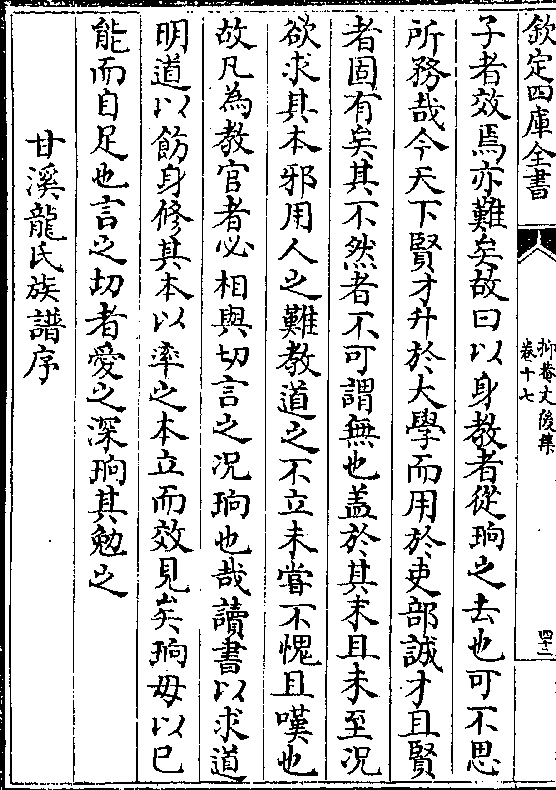 欽定四庫全書
抑菴文後集
卷十七
四十二
子者效焉亦難矣故曰以身教者從珦之去也可不思
所務哉今天下賢才升於大學而用於吏部誠才且賢
者固有矣其不然者不可謂無也盖於其末且未至况
欲求其本邪用人之難教道之不立未嘗不愧且嘆也
故凡為教官者必相與切言之况珦也哉讀書以求道
明道以飭身修其本以率之本立而效見矣珦毋以已
能而自足也言之切者愛之深珦其勉之
甘溪龍氏族譜序